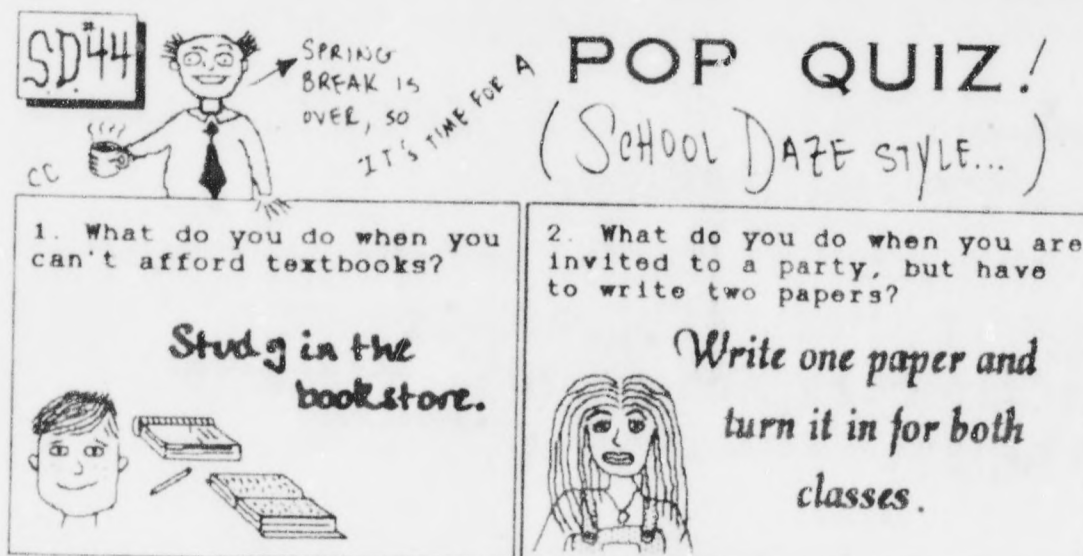 S.D. #44
CC
SPRING
BREAK IS
OVER, SO
IT'S TIME FOR A
POP QUIZ!
(SCHOOL DAZE STYLE...)
1. What do you do when you
can't afford textbooks?
Study in the
bookstore.
2. What do you do when you are
invited to a party, but have
to write two papers?
Write one paper and
turn it in for both
classes.